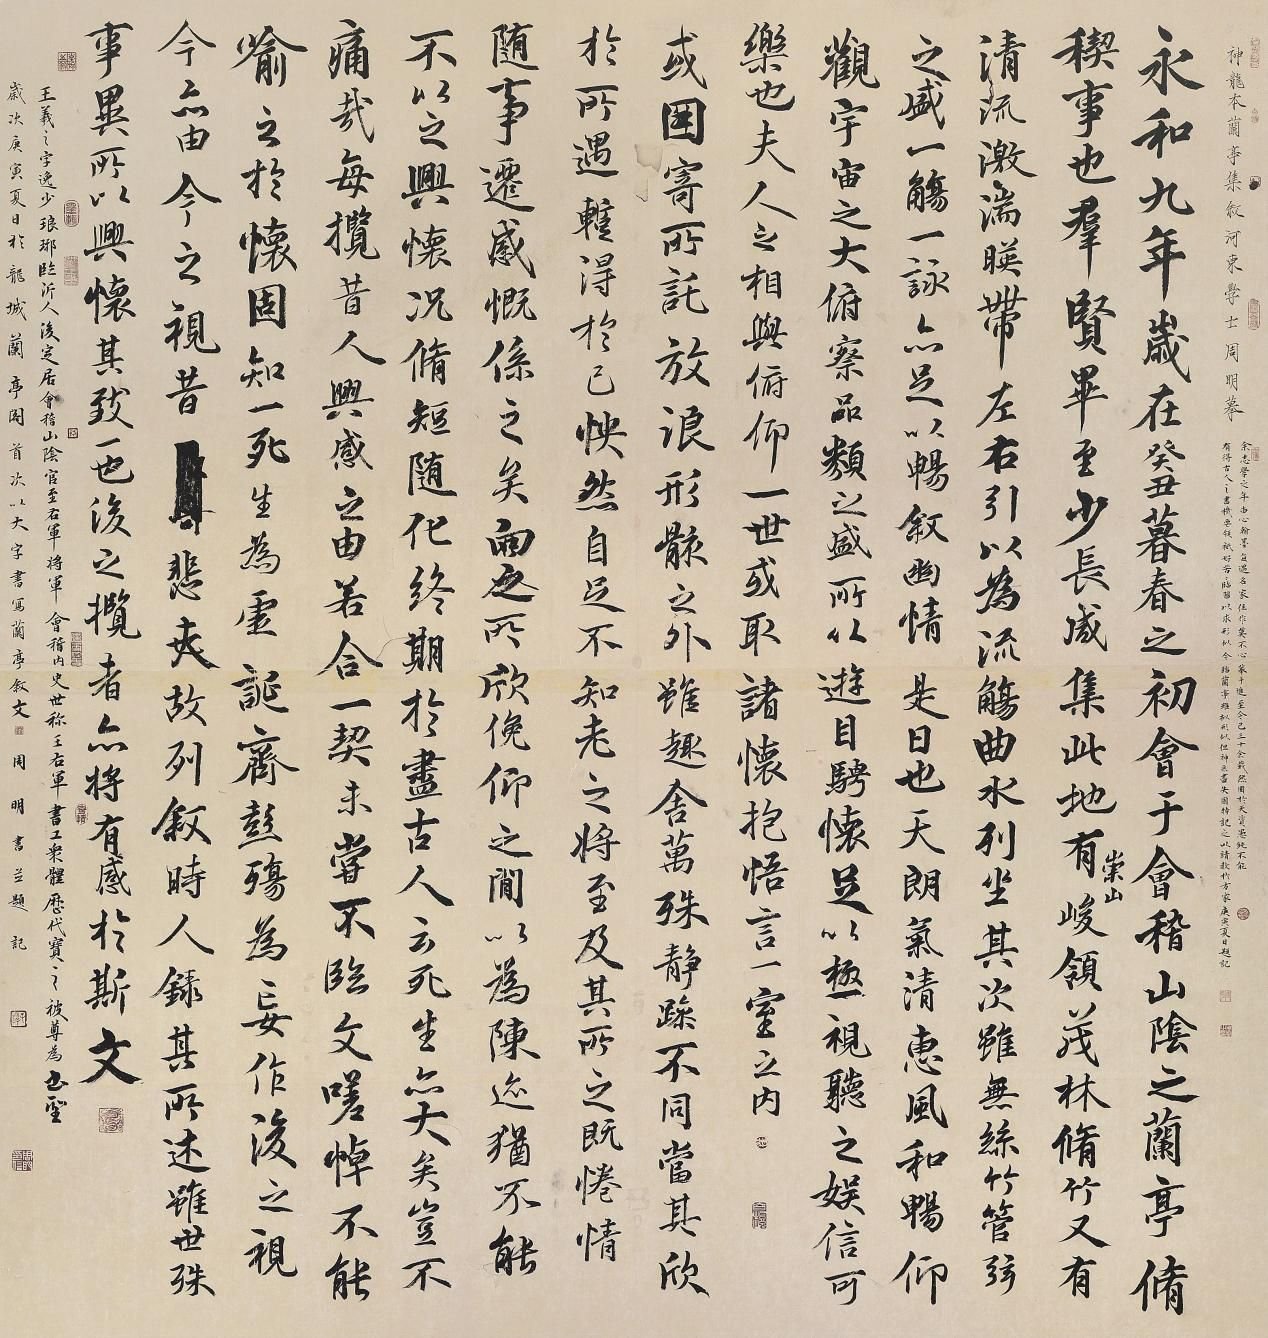 神龍本蘭亭集叙河東學士周明摹
余志學之年由心翰墨每遇名家佳作莫不心摹手追至今已三十余載然困於天資愚鈍不能
有得古人之書機要領祇好苦苦臨習以求形似今臨蘭亭雖拟形似但神采盡失因特記之以請教於方家庚寅夏日題記
永和九年歲在癸丑暮春之初會于會稽山陰之蘭亭脩
禊事也羣賢畢至少長咸集此地有崇山峻領茂林脩竹又有
清流激湍暎帶左右引以為流觴曲水列坐其次雖無絲竹管弦
之盛一觴一詠亦足以暢敘幽情是日也天朗氣清惠風和暢仰
觀宇宙之大俯察品類之盛所以遊目騁懷足以極視聽之娛信可
樂也夫人之相與俯仰一世或取諸懷抱悟言一室之內
或因寄所託放浪形骸之外雖趣舍萬殊靜躁不同當其欣
於所遇蹔得於己怏然自足不知老之將至及其所之既惓情
随事遷感慨係之矣向之所欣俛仰之閒以為陳迹猶不能
不以之興懷況脩短隨化終期於盡古人云死生亦大矣豈不
痛哉每攬昔人興感之由若合一契未嘗不臨文嗟悼不能
喻之於懷固知一死生為虛誕齊彭殤為妄作後之視
今亦由今之視昔悲夫故列敘時人錄其所述雖世殊
事異所以興懷其致一也後之攬者亦將有感於斯文
王羲之字逸少琅琊臨沂人後定居會稽山陰官至右軍將軍會稽內史世称王右軍書工衆體歷代寶之被尊為书聖
歲次庚寅夏日於龍城蘭亭閣首次以大字書寫蘭亭叙文周明書並題記